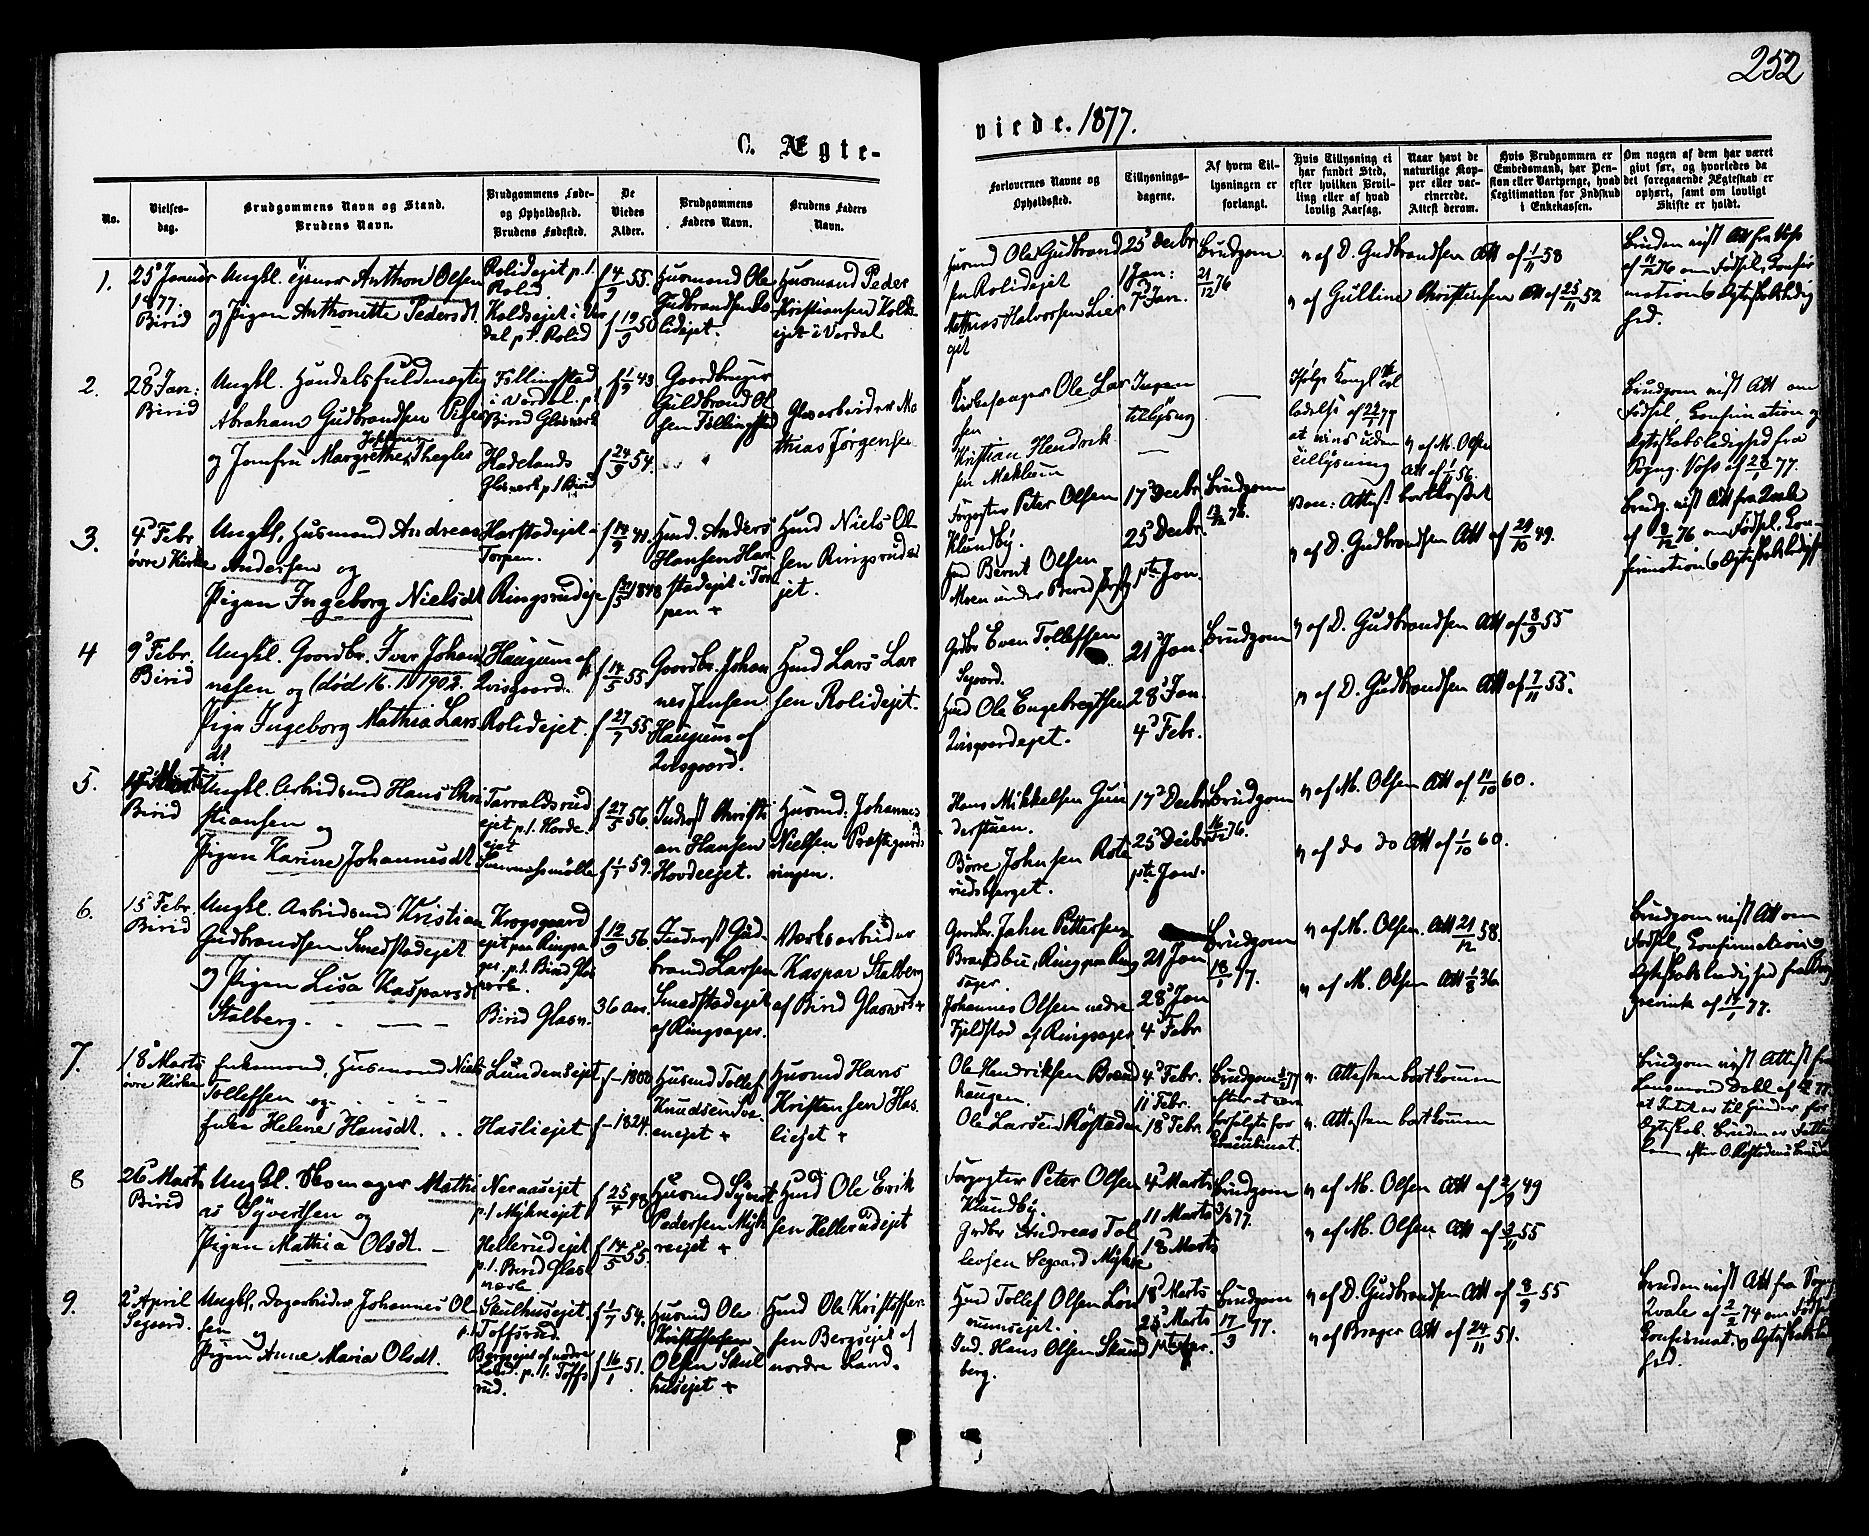 252
C. Ægte-
viede. 1877.
No.
Vielses-
dag.
Brudgommens Navn og Stand.
Brudens Navn.
Brudgommens Føde-
og Opholdsted.
Brudens Fødested.
De
Viedes
Alder.
Brudgommens
Faders Navn.
Brudens Faders
Navn.
Forlovernes Navne og
Opholdsted.
Tillysnings-
dagene.
Af hvem Til-
lysningen er
forlangt.
Hvis Tillysning ei
har fundet Sted,
efter hvilken Bevil-
ling eller af hvad
lovlig Aarsag.
Naar havt de
naturlige Kop-
per eller vac-
cinerede.
Attest derom.
Hvis Brudgommen er
Embedsmand, har Pen-
sion eller Vartpenge, hvad
Legitimation for Indskud
i Enkekassen.
Om nogen af dem har været
givt før, og hvorledes da
det foregaaende Ægteskab er
ophørt, samt om lovligt
Skifte er holdt.
1.
25 Januar
1877.
Birid
Ungkl. Anthon Olsen
og Pigen Anthonette Pedersdt.
Rolidejet p.t.
Rolid
Koldsejet i Var
dal p.t. Rolid
f 4/9 55.
f 19/9 50
Husmand Ole
Gudbrandsen Ro
lidejet.
Husmand Peder
Kristiansen Kolds
ejet i Vardal
Husmd Ole Gudbrand
sen Rolidejet
Mathias Halvorsen Lier
get
25 Decbr
1 Jan:
7 Jan.
Brudgom
21/12 76
v af D. Gudbrandsen Att af 1/11 58
v af Gulline Christensen Att af 25/11 52
Bruden vist Att fra
af 11/12 76 om Fødsel, Confir
mation & Ægteskabsledig
hed.
2.
28 Jan:
Birid
Ungkl. Handelsfuldmægtig
Abraham Gudbrandsen
og Jomfru Margrethe Thegler
Føllingstad
i Vardal p.t.
Birid Glasværk
Hadelands
Glasværk p.t Birid
f 1/9 43
f 24/9 54.
Gaardbruger
Guldbrand Ol
sen Føllingstad
Glasarbeider Ma
thias Jørgensen
Kirkesanger Ole Lar
sen
Kristian Hendrik
sen Mæhlum
Ingen
tillysning
Ifølge Kongl
ladelse af 22/1 77
at vies uden
tillysning
v af M. Olsen
Att af 1/11 56.
Brudgom vist Att om
Fødsel, Confirmation og
Ægteskabsledighed fra
Sogn. Voss af 28/1 77.
3.
4 Febr
øvre Kirke
Ungkl, Husmand Andreas
Andersen og
Pigen Ingeborg Nielsdt
Harstadejet i
Torpen.
Ringsrudeje
f 14/9 41
f 17/5 1848
Hmd. Anders
Hansen Har
stadejet i Tor
pen +
Hmd Niels Ol
sen Ringsruds
jet.
Forgagter Peter Olsen
Klundby.
Hmd Bernt Olsen
Moen under Berid
17 Decbr
25 Decbr.
1ste Jan.
Brudgom
Vac. Attest bortkommet
v af D. Gudbrandsen Att af 29/10 49.
Brudg. vist Att fra
af 8/12 76 om Fødsel. Con-
firmation & Ægteskabsledighed
4
9 Febr.
Birid
Ungkl. Gaardbr. Iver Johan
nesen og (død 16. 1 1902.
Pige Ingeborg Mathia Lars
dt
Haugum af
Kvisgaard.
Rolidejet.
f 14/5 55
f 27/7 55.
Gaardbr. Johan
nes Jensen
Haugum af
Kvisgaard.
Hmd Lars Lar
sen Rolidejet.
Grdbr Even Tollefsen
Segaard.
Hmd Ole Engebregtsen
Kvisgaardejet.
21 Jan.
28 Jan.
4 Febr.
Brudgom
v af D. Gudbrandsen Att af 8/9 55
v af D. Gudbrandsen Att af 7/11 55.
5.
Birid
Ungkl. Arbeidsmd Hans Chri
stiansen og
Pigen Karine Johannesdt
Tarraldsrud
ejet p.t. Hovde
ejet
f 27/5 56.
f 1/1 59.
Inderst Christi
an Hansen
Hovdeejet.
Husmd. Johannes
Nielsen Præstegaards
vingen.
Hans Mikkelsen Gun
derstuen.
Børre Johnsen Rota
rudsberget.
17 Decbr
25 Decbr
1ste Jan.
Brudgom
16/12 76.
v af M. Olsen Att af 11/10 60.
v af do do Att af 1/10 60.
6.
15 Febr.
Birid
Ungkl. Arbeidsmd Kristian
Gudbrandsen Smedstadejet
og Pigen Lisa Kaspersdt
Stalberg.
Krogsgaard
ejet paa Ringsa
ger. p.t. Birid Glas
værk.
Birid Glasv.
f 12/9 56.
36 Aar.
Inderst Gud-
brand Larsen
Smedstadejet
af Ringsager.
Værksarbeider
Kaspar Stalberg
af Birid Glasværk +
Gaardbr. John Pettersen
Brandbu, Ring paa Ring
sager.
Johannes Olsen nedre
Fjeldstad af Ringsager
21 Jan
28 Jan
4 Febr
Brudgom
18/1 77.
v af M. Olsen. Att 21/12 58.
v af M. Olsen Att 1/8 36
Brudgom vist Att om
Fødsel, Confirmation og
Ægteskabsledighed fra Ring
af 14/1 77.
7.
18 Marts
øvre Kirke
Enkemand, Husmand Niels
Tollefsen og
Enke Helene Hansdt.
Lundensejet
Hasliejet
f - 1808
f - 1824.
Husmd Tollef
Knudsen
enejet +
Husmd Hans
Kristensen Has
liejet +
Ole Hendriksen Brænd
haugen.
Ole Larsen Røstaden
4 Febr.
11 Febr.
18 Febr.
Brudgom
efter at være
forfulgte for
Concubinat.
v. Attesten bortkommen
v. Attesten bortkommen
Brudgom vist Attest fra
Lensmand Dahl af
at Intet er til Hinder for
Ægteskab. Bruden er
kone efter O. Røstadens
8
26 Marts
Birid
Ungkl. Skomager Mathi
as Syvertsen og
Pigen Mathia Olsdt.
Neraasejet
p.t Mykreejet
Hellerudejet
p.t. Birid Glas
værk
f 25/4 48
f 14/5 55.
Husmd Syvert
Pedersen Myk
reejet +
Hmd Ole Erik
sen Hellerudejet
Forgagter Peter Olsen
Klundby.
Grdbr Andreas Tol
lefsen Segaard Mykre
4 Marts
11 Marts
18 Marts
Brudgom
v af M. Olsen Att af 2/9 49
v af M. Olsen. Att af 3/11 55
9.
2 April
Segaard.
Ungkl, Dagarbeider Johannes Ol
sen og
Pigen Anne Maria Olsdt.
Skulhusejet
p.t. Toffsrud.
Bergsejet af nordre
Land. p.t. Toffs
rud.
f 1/7 54.
f 16/1 51.
Husmd Ole
Kristoffersen
Olsen Skul
husejet +
Hmd Ole Kristoffer
sen Bergsejet af
nordre Land.
Hmd Tollef Olsen
Ind. Hans Olsen
berg.
18 Marts
25 Marts
1ste Apr.
Brudgom
17/3 77.
v af D. Gudbrandsen Att af 8/9 55
v af Brager Att af 24/11 51.
Bruden vist Att fra Sogn
af 2/2 74 om Fødsel
Confirmat. & Ægteskabsle
hed.